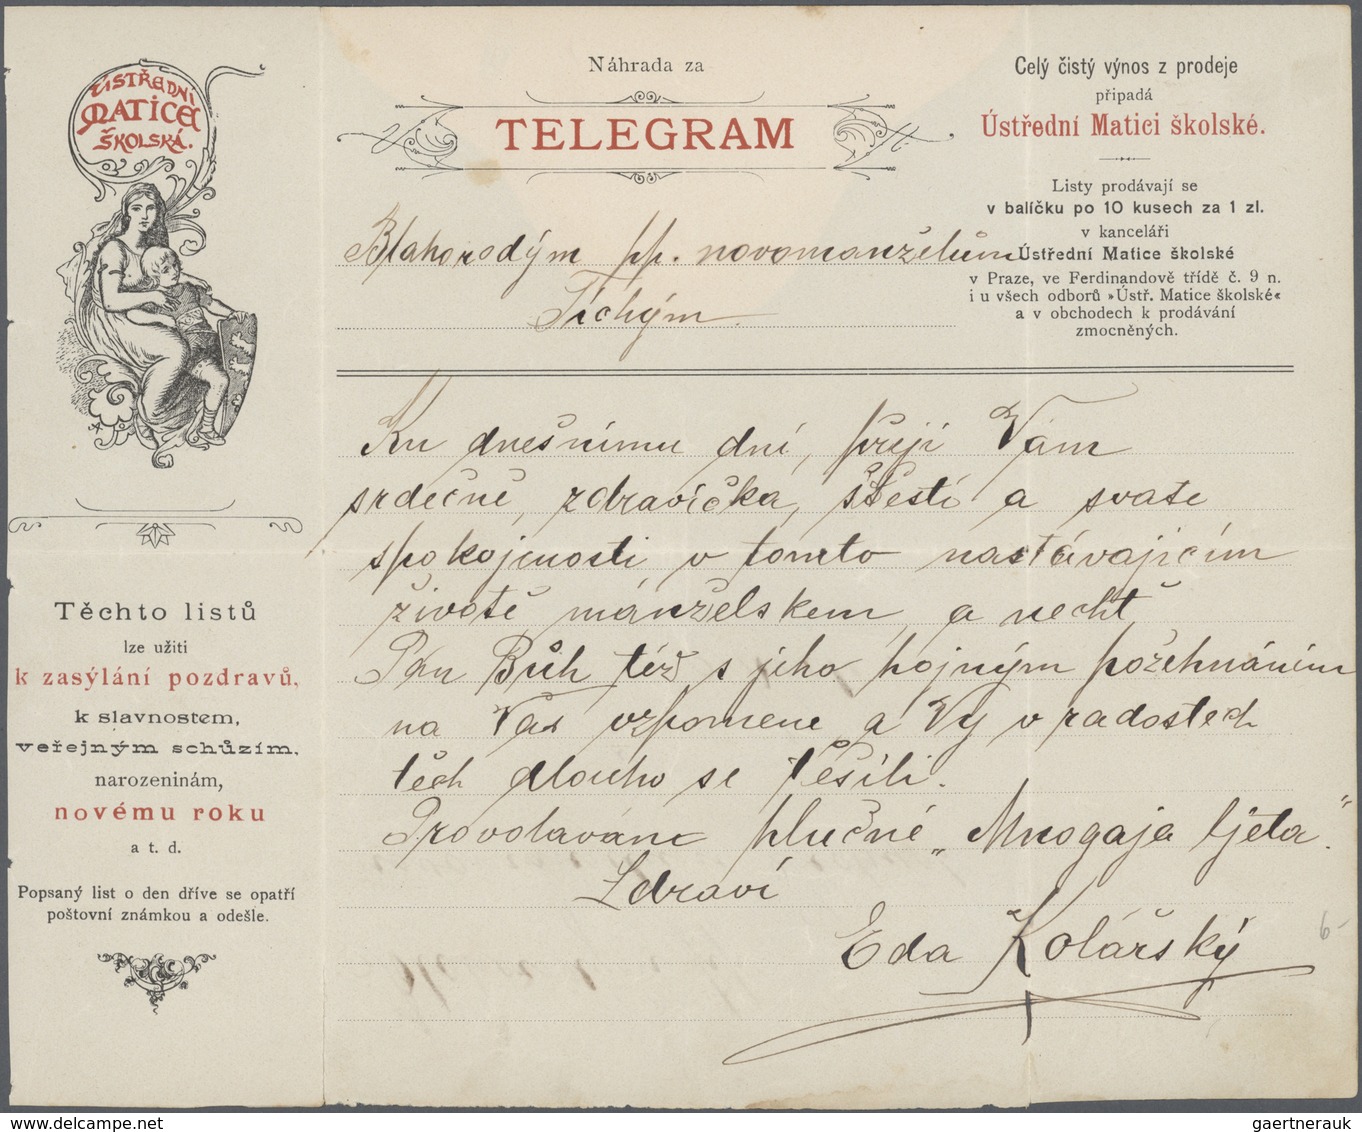 ÚSTŘEDNÍ
MATICE
ŠKOLSKÁ.
Náhrada za
TELEGRAM
Celý čistý výnos z prodeje
připadá
Ústřední Matici školské.
Listy prodávají se
v balíčku po 10 kusech za 1 zl.
v kanceláři
Ústřední Matice školské
v Praze, ve Ferdinandově třídě č. 9 n.
i u všech odborů »Ústř. Matice školské«
a v obchodech k prodávání
zmocněných.
Blahorodým pp. novomanželům
Tichým.
Ku dnešnímu dni, přeji Vám
srdečně, zdravíčka, štěstí a svaté
spokojenosti v tomto nastávajícím
životě manželském, a nechť
Pán Bůh též s jeho hojným požehnáním
na Vás vzpomene a Vy v radostech
těch dlouho se těšili.
Provolávám hlučné „Mnogaja ljeta."
Zdraví
Eda Kolářský
Těchto listů
lze užiti
k zasýlání pozdravů,
k slavnostem,
veřejným schůzím,
narozeninám,
novému roku
a t. d.
Popsaný list o den dříve se opatří
poštovní známkou a odešle.
6-
gaertnerauk